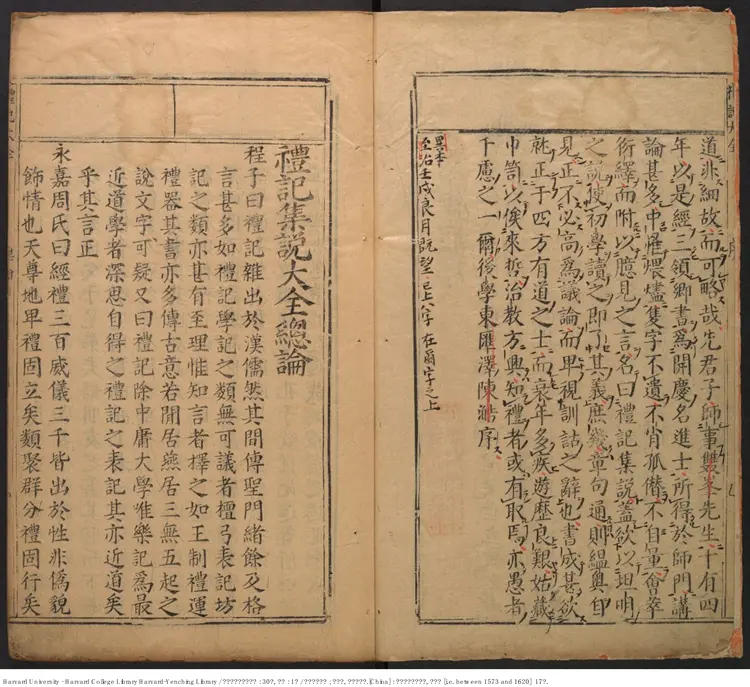 道非細故而可略哉先君子師事雙峯先生十有四
年以是經三領鄉書爲開慶名進士所得於師門講
論甚多中罹煨燼隻字不遺不肖孤僭不自量會萃
衍繹而附以臆見之言名曰禮記集說蓋欲以坦明
之說使初學讀之即了其義庶幾章句通則縕奧自
見正不必高爲議論而卑視訓詁之辭也書成甚欲
就正于四方有道之士而衰年多疾遊歷良艱姑藏
巾笥以俟來哲治敎方興知禮者或有取焉亦愚者
千慮之一爾後學東匯澤陳澔序
異本
至治壬戌良月既望 已上八字 在爾字之上
禮記集說大全總論
程子曰禮記雜出於漢儒然其間傳聖門緒餘及格
言甚多如禮記學記之類無可議者檀弓表記坊
記之類亦甚有至理惟知言者擇之如王制禮運
禮器其書亦多傳古意若閒居燕居三無五起之
說文字可疑又曰禮記除中庸大學唯樂記爲最
近道學者深思自得之禮記之表記其亦近道矣
乎其言正
永嘉周氏曰經禮三百威儀三千皆出於性非僞貌
飾情也天尊地卑禮固立矣類聚群分禮固行矣
Harvard University - Harvard College Library Harvard-Yenching Library / ????????? : 30?, ?? : 1? / ?????? ; ???, ?????. [China] : ????????, ??? [i.e. between 1573 and 1620] 17?.